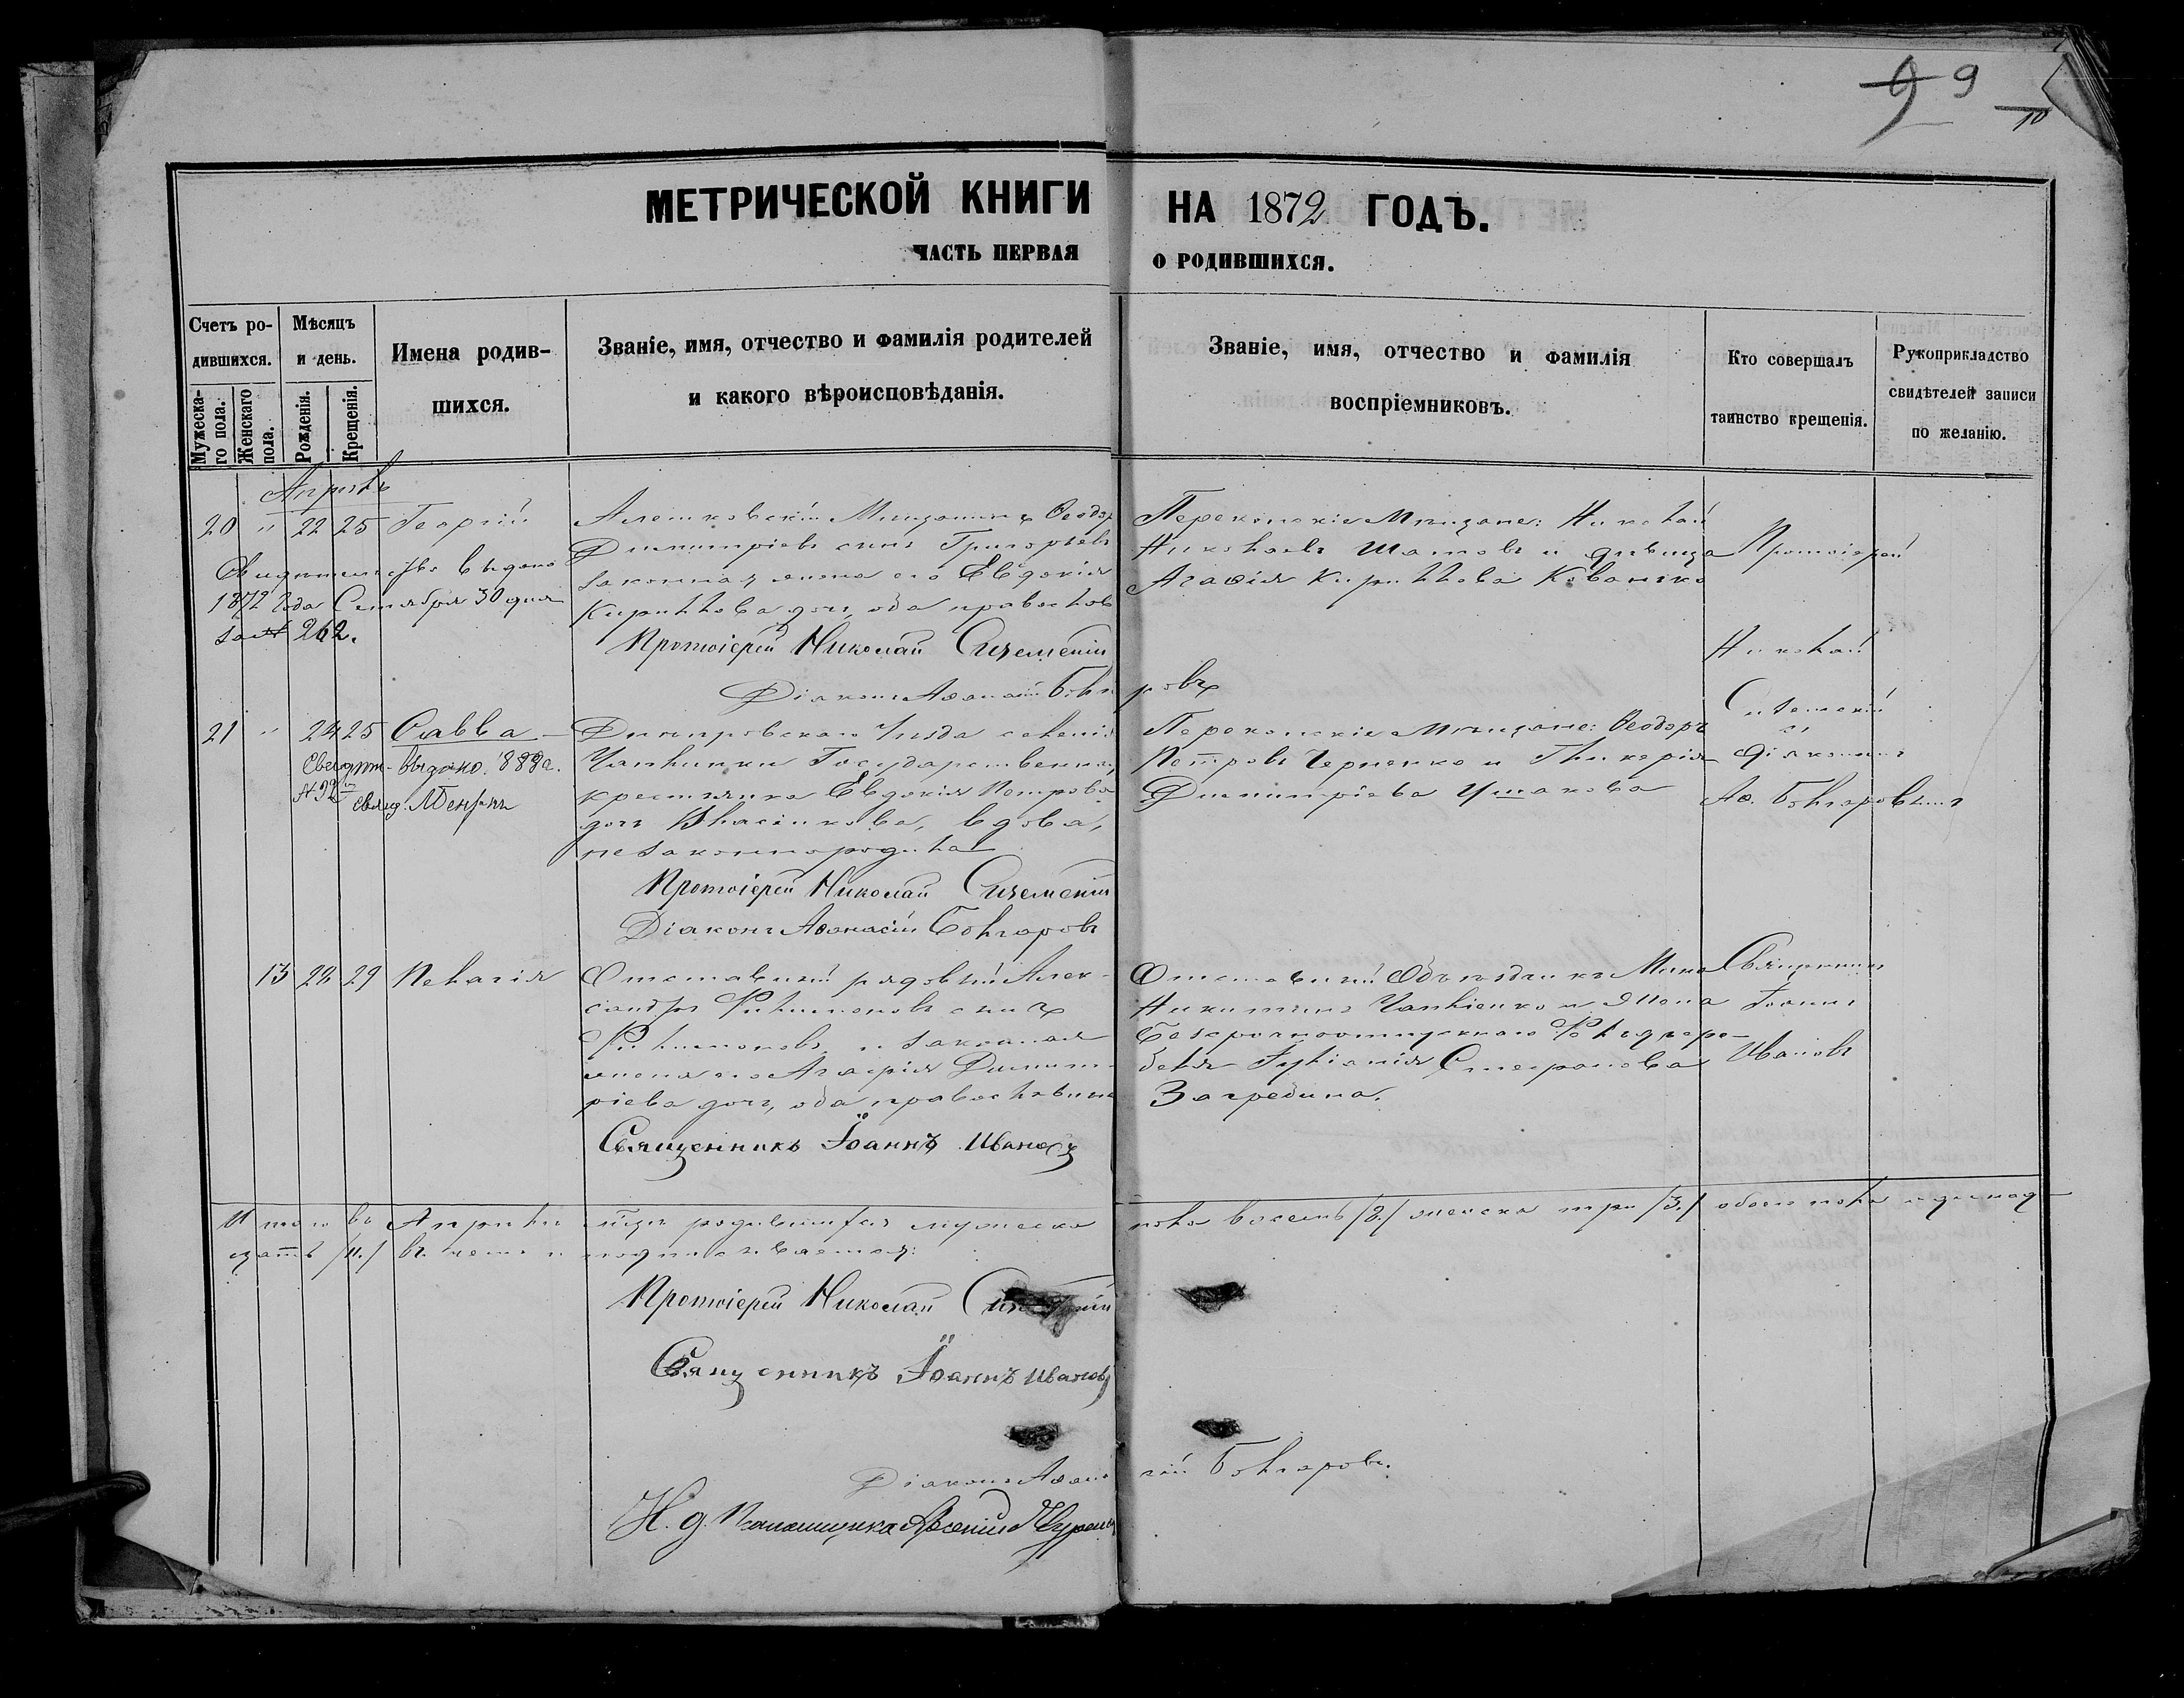 9 9
10
МЕТРИЧЕСКОЙ КНИГИ НА 1872 ГОДЪ.
ЧАСТЬ ПЕРВАЯ О РОДИВШИХСЯ.
Счетъ родившихся.
Мужескаго пола.
Женскаго пола.
Мѣсяцъ и день.
Рожденія.
Крещенія.
Имена родившихся.
Званіе, имя, отчество и фамилія родителей
и какого вѣроисповѣданія.
Званіе, имя, отчество и фамилія
воспріемниковъ.
Кто совершалъ
таинство крещенія.
Рукоприкладство
свидѣтелей записи
по желанію.
Апрѣль
20 " 22 25 Георгій
Свидетельство выдано
1872 года Сентября 30 дня
за № 262.
Алешковскій Мѣщанинъ Ѳеодор
Димитріевъ сынъ Григорьевъ
законная жена его Евдокія
Кириллова дочь, оба православ
Протоіерей Николай
Перекопскіе Мѣщане: Николай
Николаевъ Шатовъ и дѣвица
Агаѳія Кириллова
Протоіерей
Николай
Діаконъ Аѳанасій Болгаровъ
21 " 24 25 Савва
Свидѣт. выдано. 1888 г.
№ 92
свящ.
Днѣпровскаго Уѣзда селенія
Чаплинки Государственная
крестьянка Евдокія Петрова
дочь Власенкова, вдова,
незаконнородила
Протоіерей Николай
Діаконъ Аѳанасій Болгаровъ
Перекопскіе Мѣщане: Ѳеодоръ
Петровъ Черненко и Гликерія
Димитріева Ушакова
и
діакономъ
Аѳ. Болгаровымъ
13 28 29 Пелагія
Отставный рядовый Алек-
сандръ Филимоновъ сынъ
Филимоновъ, и законная
жена его Агафія Димит-
ріева дочь, оба православные
Священникъ Іоаннъ Ивановъ
Отставный Объѣздчикъ Мина
Никитинъ Чаплѣенко и Жена
Безсрочноотпускнаго
Іуліанія Стефанова
Загребина.
Священникъ
Іоаннъ
Ивановъ
Итого въ Апрѣлѣ м-цѣ родившихся мужеска пола восемь /8./ женска три /3./ обоего пола одиннад-
цать /11./ въ чемъ и подписываемся:
Протоіерей Николай
Священникъ Іоаннъ Ивановъ
Діаконъ Аѳанасій Болгаровъ.
И. д. Псаломщика Арсеній